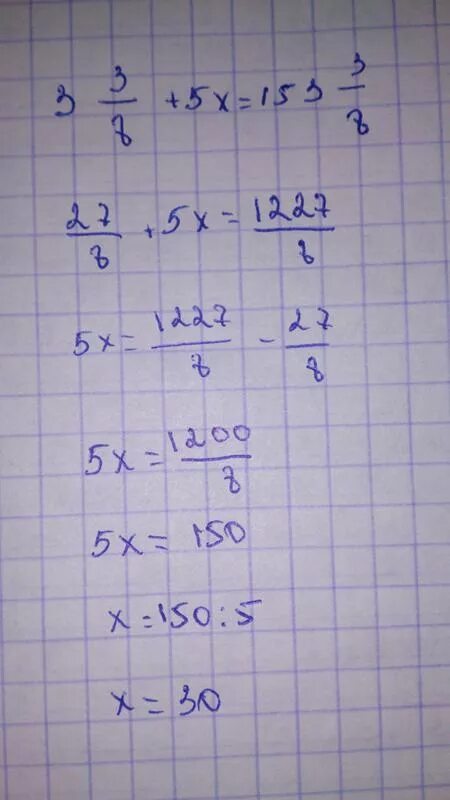 3 3/8 + 5x = 153 3/8
27/8 + 5x = 1227/8
5x = 1227/8 - 27/8
5x = 1200/8
5x = 150
x = 150 : 5
x = 30